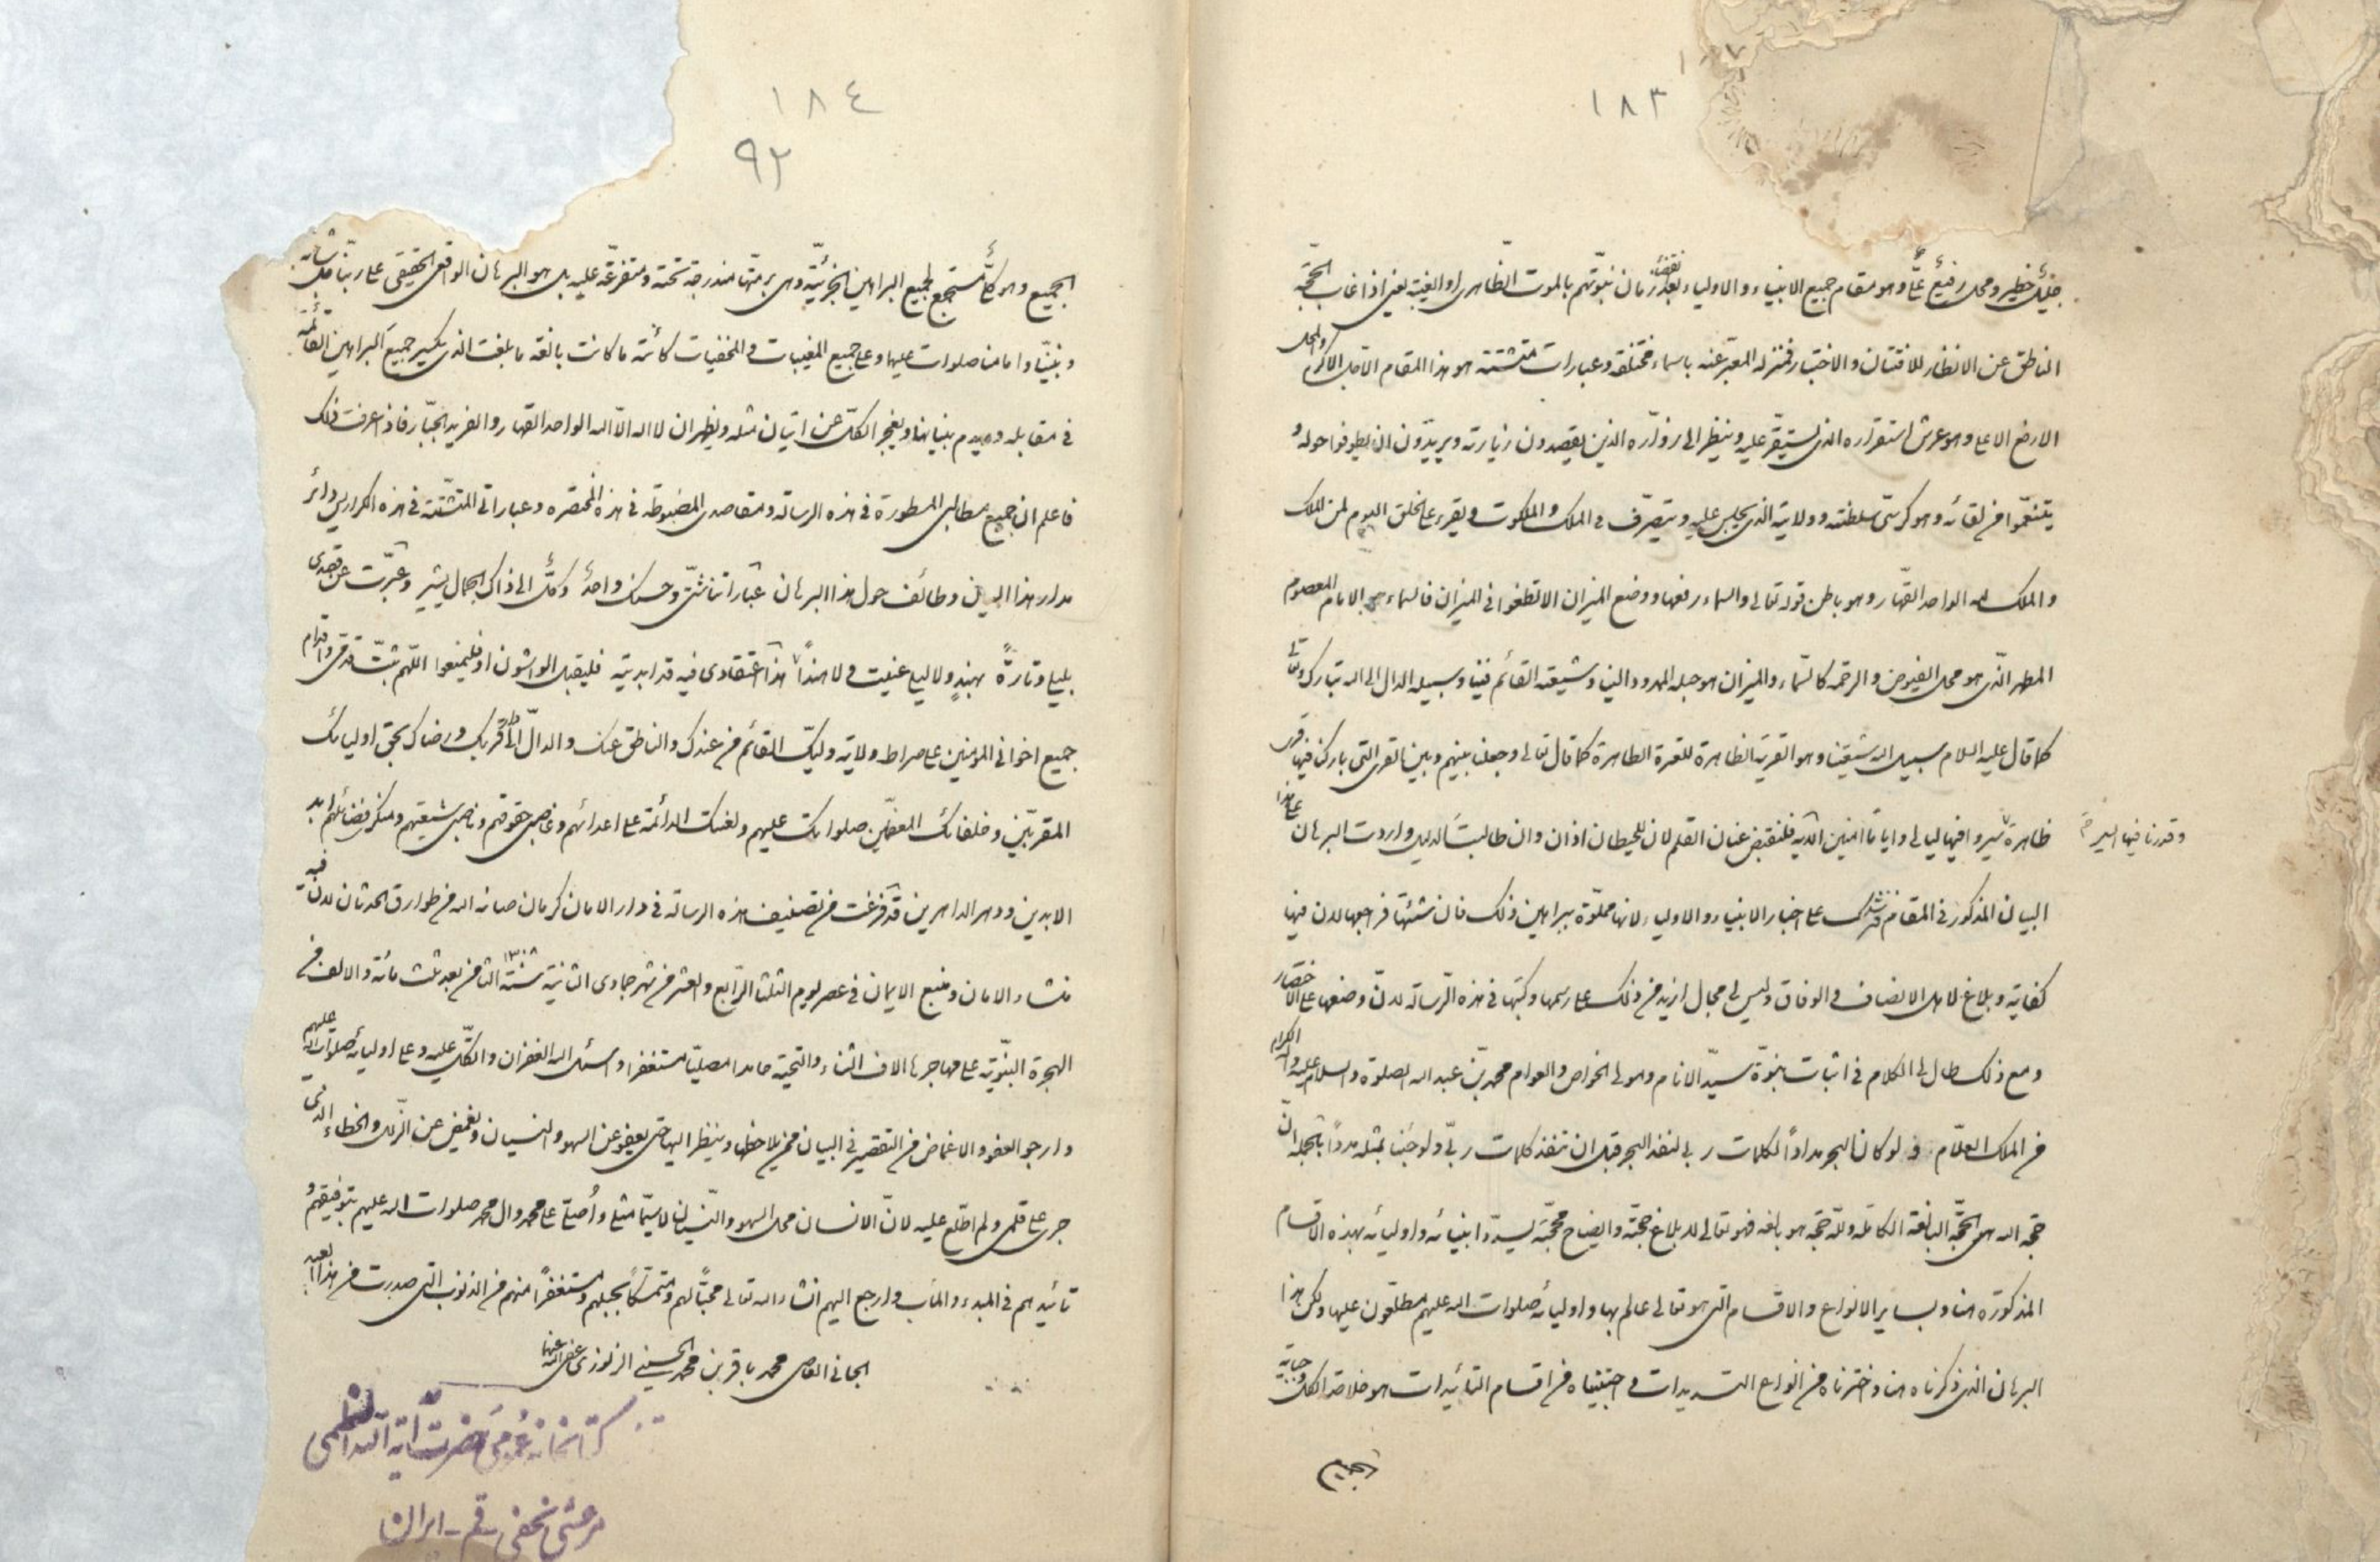 ١٨٣
جليل خطير ومحل رفيع علي وهو مقام جميع الانبياء والاولياء بعد زمان نبوتهم بالموت الظاهرى او الغيبة يعنى اذا غاب الحجة
الناطق عن الانظار للافتتان والاختبار فمنزله المعبر عنه باسماء مختلفة وعبارات متشتته هو هذا المقام الاجل الاكرم والمحل
الارفع الاعلى وهو عرش استقراره الذى يستقر عليه وينظر الى زواره الذين يقصدون زيارته ويريدون ان يطوفوا حوله و
يتنعموا من لقائه وهو كرسى سلطنته وولايته الذى يجلس عليه ويتصرف فى الملك والملكوت ويقرء على الخلق اليوم لمن الملك
والملك لله الواحد القهار وهو باطن قوله تعالى والسماء رفعها ووضع الميزان الا تطغوا فى الميزان فالسماء هو الامام المعصوم
المطهر الذى هو محل الفيوض والرحمه كالسماء والميزان هو حبله الممدود الينا وشيعته القائم فينا وسبيله الدال الى الله تبارك وتعالى
كما قال عليه السلام سبيل الله شيعتنا وهو القرية الظاهرة للقرة الطاهرة كما قال تعالى وجعلنا بينهم وبين القرى التى باركنا فيها قرى
ظاهرة وقدرنا فيها السير سيروا فيها ليالى واياما امنين الاية فلنقبض عنان القلم لان للحيطان اذان وان طالبت الدليل واردت البرهان على هذا
البيان المذكور فى المقام فعليك على اخبار الانبياء والاولياء لانها مملوة ببراهين ذلك فان شئتها فراجعها لان فيها
كفاية وبلاغ لاهل الانصاف والوفاق وليس لى مجال ازيد من ذلك على رسمها وكتبها فى هذه الرسالة لان وضعها على الاختصار
ومع ذلك طال لى الكلام فى اثبات نبوة سيد الانام ومولى الخواص والعوام محمد بن عبد الله الصلوة والسلام عليه واله الكرام
من الملك العلام ولو كان البحر مدادا لكلمات ربى لنفد البحر قبل ان تنفد كلمات ربى ولو جئنا بمثله مددا بالجمله ان
حجة الله هى الحجة البالغة الكاملة ولله حجة هو بالغه فهو تعالى لابلاغ حجته وايضاح محجته يسدد انبيائه واوليائه بهذه الاقسام
المذكورة هنا وبساير الانواع والاقسام التى هو تعالى عالم بها واوليائه صلوات الله عليهم مطلعون عليها ولكن هذا
البرهان الذى ذكرناه هنا واخترناه من انواع التسديدات واجتبيناه من اقسام التأئيدات هو خلاصة الكل وجابه
الجميع
١٨٤
٩٢
الجميع وهو كلى مستجمع لجميع البراهين الجزئية وهى برمتها مندرجة تحته ومتفرعة عليه بل هو البرهان الواقعى الحقيقى على ربنا جل شانه
ونبينا وامامنا صلوات عليها وعلى جميع المغيبات والمخفيات كائنة ما كانت بالغة ما بلغت الذى يكسر جميع البراهين القائمة
فى مقابله ويهدم بنيانها ويعجز الكل عن اتيان مثله ويظهر ان لا اله الا الله الواحد القهار والفريد الجبار فاذا عرفت ذلك
فاعلم ان جميع مطالبى المسطورة فى هذه الرسالة ومقاصدى المضبوطة فى هذه المختصره وعباراتى المتشتته فى هذه الكراريس دائر
مدار هذا البيان وطائف حول هذا البرهان عباراتنا شتى وحسنك واحد وكل الى ذاك الجمال يشير وعبرت عن قصدى
بليلى وتارة بهند ولا ليلى عنيت ولا هندا هذا اعتقادى فيه قد ابديته فليقبل الواشون او فليمنعوا اللهم ثبت قدمى واقدام
جميع اخوانى المؤمنين على صراط ولاية وليك القائم من عندك والناطق عنك والدال الى قربك ورضاك بحق اوليائك
المقربين وخلفائك المفضلين صلواتك عليهم ولعنك الدائمة على اعدائهم وغاصبى حقوقهم وناصبى شيعتهم ومنكر فضائلهم ابد
الابدين ودهر الداهرين قد فرغت من تصنيف هذه الرسالة فى دار الامان كرمان صانه الله من طوارق الحدثان لان فيه
منشاء الامان ومنبع الايمان فى عصر يوم الثلثا الرابع والعشر من شهر جمادى الثانية سنة ١٣٠٨ الثامن بعد ثلث مائة والالف من
الهجرة النبوية على مهاجرها الاف الثناء والتحية حامدا مصليا مستغفرا واسئل الله الغفران واتكلى عليه وعلى اوليائه صلوات الله عليهم
وارجو العفو والاغماض من التقصير فى البيان ممن يلاحظها وينظر اليها حتى يعفو عن السهو والنسيان ويغمض عن الزلل والخطاء الذى
جرى على قلمى ولم اطلع عليه لان الانسان محل السهو والنسيان لا سيما مثلى واصلى على محمد وال محمد صلوات الله عليهم بتوفيقهم و
تأئيدهم فى المبدء والماب وارجع اليهم انشاء الله تعالى محبا لهم ومتمسكا بحبلهم ومستغفرا منهم من الذنوب التى صدرت من هذا العبد
الجانى العاصى محمد باقر بن محمد الحسينى الزنوزى عفى الله عنهما
كتابخانه عمومى حضرت آية الله العظمى
مرعشى نجفى - قم - ايران